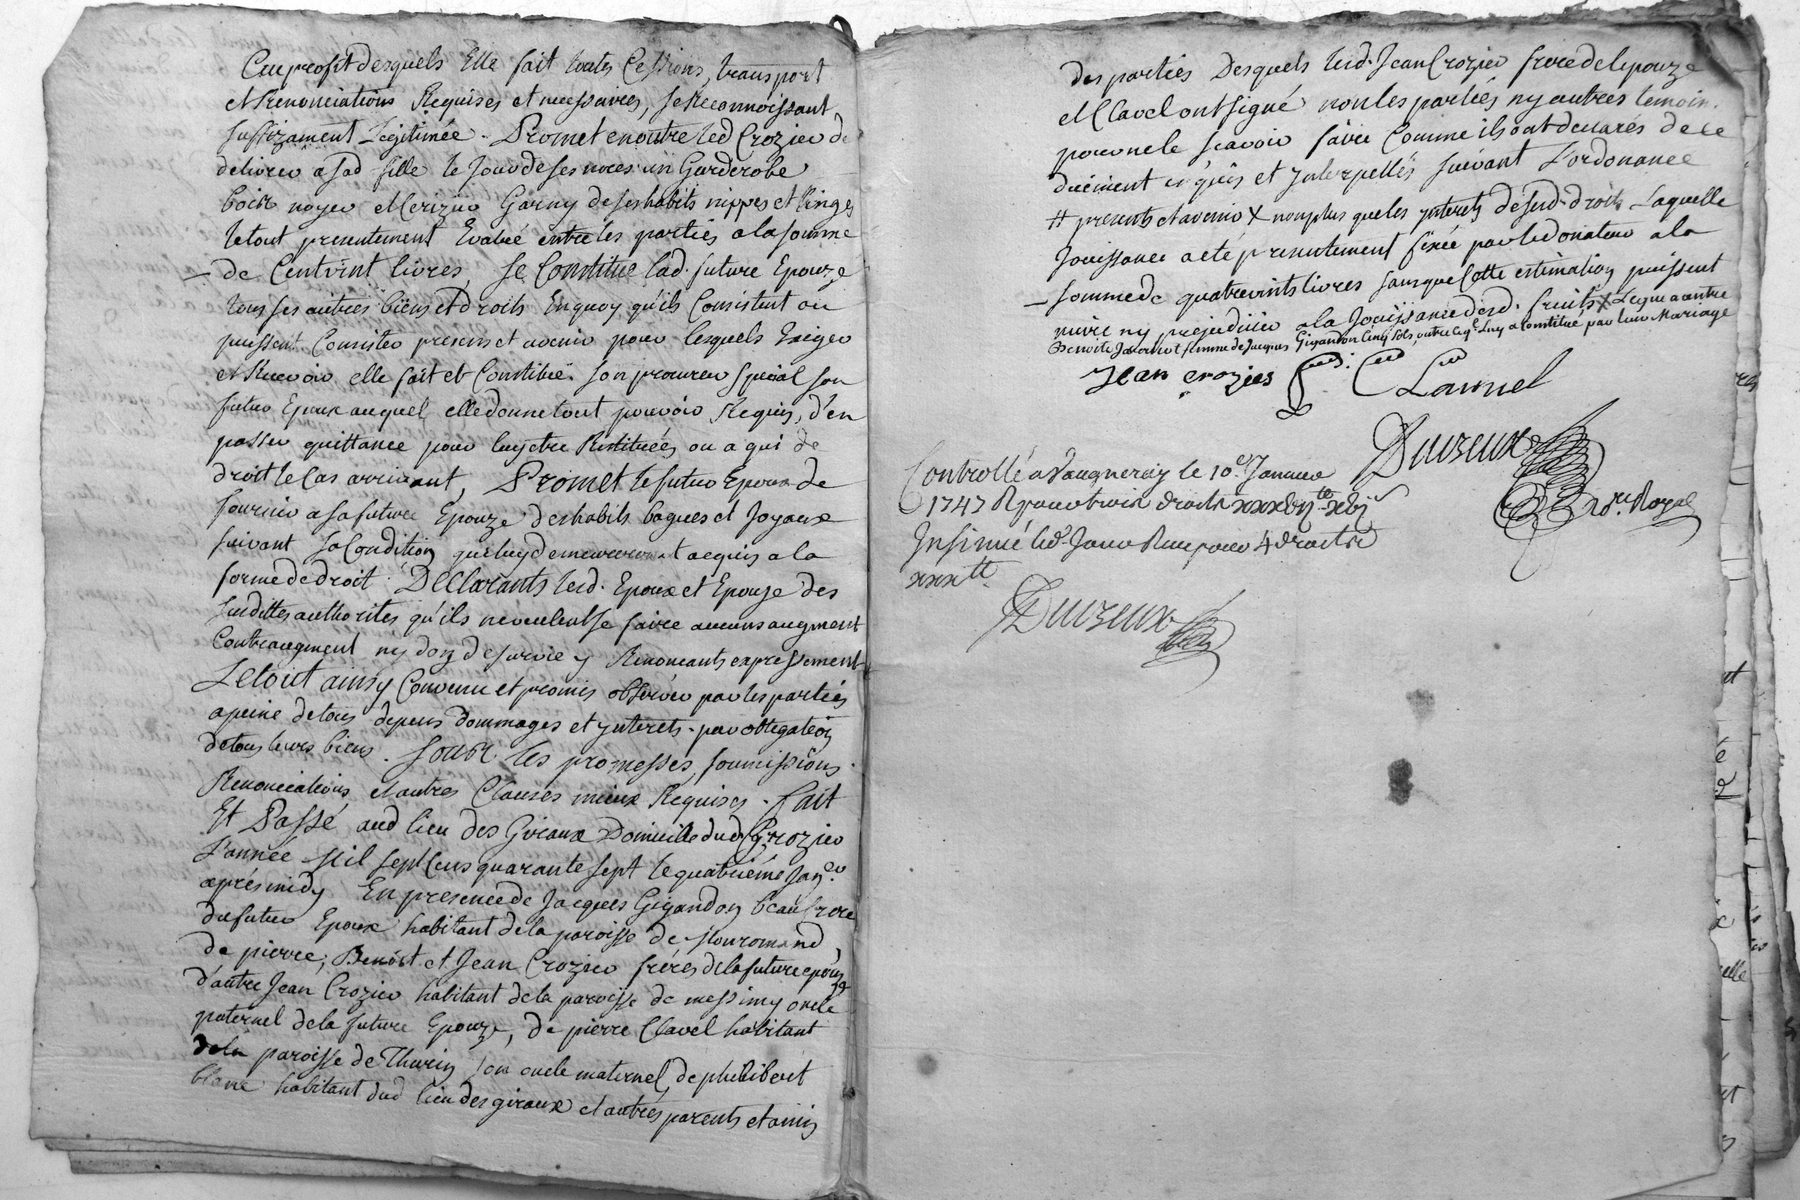 Cu profit desquels Elle fait toutes Cessions, transport
et Renonciations Requises et necessaires, se Reconnoissant
suffizament Légitimée. Promet en outre led Crozier de
delivrer a sad fille le Jour de ses noces un Garderobe
bois noyer et Cerizier Garny de ses habits nippes et Linges
le tout presentement Evalué entre les parties a la somme
de Centvint livres, Se Constitue lad. future Epouze
tous ses autres biens et droits En quoy qu'ils Consistent ou
puissent Consister presens et avenir pour lesquels Exiger
et Recevoir elle fait et Constitue son procureur special son
futur Epoux auquel elle donne tout pouvoir Requis, d'en
passer quittance pour luy etre Restituées ou a qui de
droit le Cas arrivant, Promet le futur Epoux de
fournir a sa future Epouze des habits bagues et Joyaux
suivant sa Condition que luy demeureront acquis a la
forme de droit. Declarants lesd. Epoux et Epouze des
susdittes authorités qu'ils ne veulent se faire aucuns augment
Contraugment ny don de survie y Renonceants expressement
Le tout ainsy Convenu et promis observer par les parties
a peine de tous depens dommages et ynterets par obligation
de tous leurs biens. sous les promesses, soumissions
Renonciations et autres Clauses mieux Requises. fait
Et Passé aud lieu des Giraux Domicille dud Crozier
L'année Mil sept Cens quarante sept le quatrième Janer
après midy En presence de Jacques Gigandon beaufrere
du futur Epoux habitant de la paroisse de
de pierre, Benoist et Jean Crozier frères de la future epouze
d'autre Jean Crozier habitant de la paroisse de messimy oncle
paternel de la future Epouze, de pierre Clavel habitant
de la paroisse de Thurin son oncle maternel, de philibert
blanc habitant dud lieu des giraux et autres parents et amis
des parties Desquels lesd. Jean Crozier frere de lepouze
et Clavel ont signé non les parties ny autres temoins
pour ne le scavoir faire Comme ils ont declarés de ce
duement enquis et ynterpellés suivant L'ordonance
# presents et avenir X non plus que les ynterets desusd. droits Laquelle
Jouissance a eté presentement fixée par le donateur a la
somme de quatrevints livres sans que Cette estimation puissent
nuire ny prejudicier a la Jouissance desd. fruits X
Benoite femme de Jacques Gigandon Cinq sols, outre ce qe Luy a Constitué par leur Mariage
Jean crozier
Clavel
Duvreux
Nore. Royal
Controllé a Vaugneray le 10e Janvier
1747
Insinué led. Jour Reçu pour 4 droits
xxxtt
Duvreux